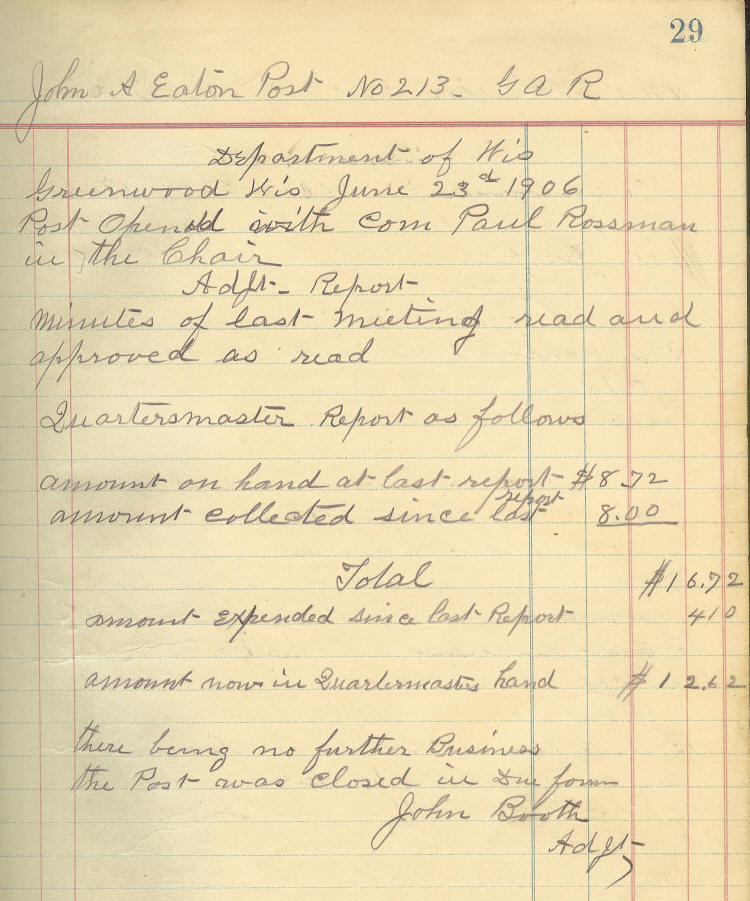 29
John A Eaton Post No 213 - G A R
Department of Wis
Greenwood Wis June 23d 1906
Post Opened with Com Paul Rossman
in the Chair
Adjt - Report
minutes of last meeting read and
approved as read
Quartersmaster Report as follows
amount on hand at last report $8.72
report
amount collected since last 8.00
Total $16.72
amount Expended since last Report 410
amount now in Quartermasters hand $12.62
there being no further Business
the Post was closed in Due form
John Booth
Adjt